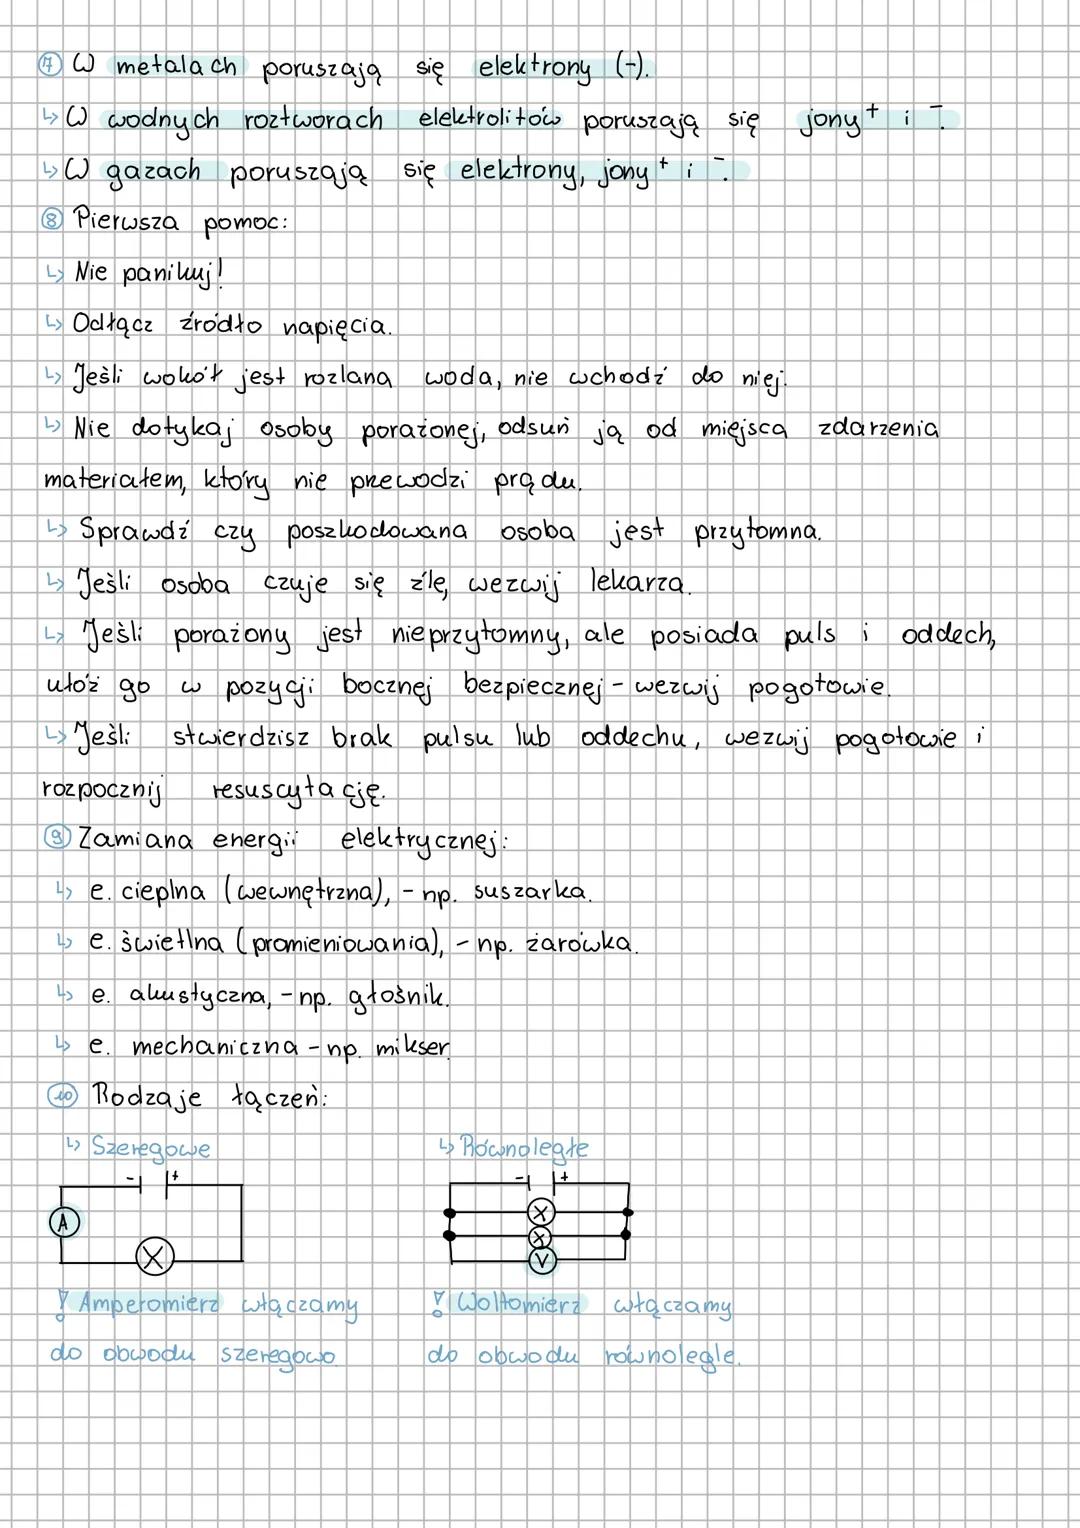 ⑦ W metalach poruszają się elektrony (-).
↳ W wodnych roztworach elektrolitów poruszają się jony + i -.
↳ W gazach poruszają się elektrony, jony + i -.
⑧ Pierwsza pomoc:
↳ Nie panikuj!
↳ Odłącz źródło napięcia.
↳ Jeśli wokół jest rozlana woda, nie wchodź do niej.
↳ Nie dotykaj osoby porażonej, odsuń ją od miejsca zdarzenia
materiałem, który nie przewodzi prądu.
↳ Sprawdź czy poszkodowana osoba jest przytomna.
↳ Jeśli osoba czuje się źle, wezwij lekarza.
↳ Jeśli porażony jest nieprzytomny, ale posiada puls i oddech,
ułóż go w pozycji bocznej bezpiecznej - wezwij pogotowie.
↳ Jeśli stwierdzisz brak pulsu lub oddechu, wezwij pogotowie i
rozpocznij resuscytację.
⑨ Zamiana energii elektrycznej:
↳ e. cieplna (wewnętrzna), - np. suszarka.
↳ e. świetlna (promieniowania), - np. żarówka.
↳ e. akustyczna, - np. głośnik.
↳ e. mechaniczna - np. mikser
⑩ Rodzaje łączeń:
↳ Szeregowe ↳ Równoległe
- + - +
A X
X X V
! Amperomierz włączamy
do obwodu szeregowo
! Woltomierz włączamy
do obwodu równolegle.